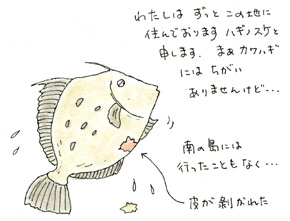 わたしは ずっと この地に
住んでおります ハギノスケと
申します. まぁ カワハギ
には ちがい
ありませんけど…
南の島には
行ったこともなく…
皮が剥がれた